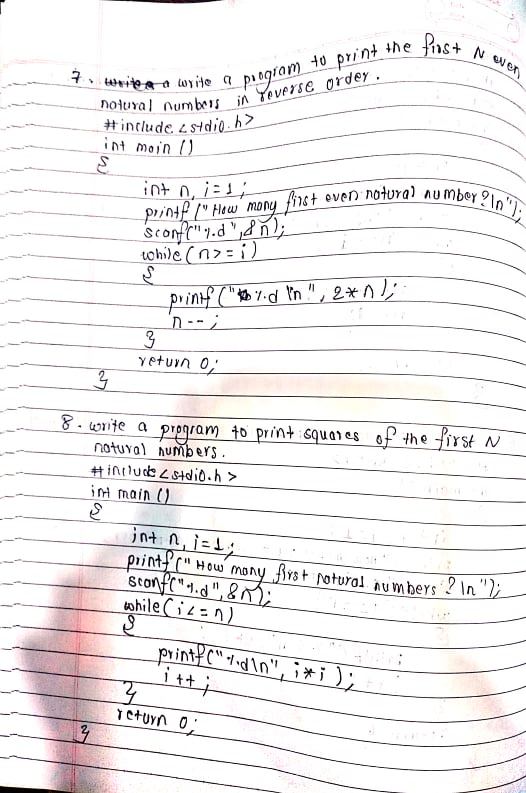 7. write a a write a program to print the first N even
natural numbers in reverse order.
#include <stdio.h>
int main ()
{
int n, i=1;
printf (" How many first even natural number?\n");
scanf("%d",&n);
while (n>=i)
{
printf ("%d \n", 2*n);
n--;
}
return 0;
}
8. write a program to print squares of the first N
natural numbers.
#include <stdio.h>
int main ()
{
int n, i=1;
printf (" How many first natural numbers ? \n");
scanf("%d",&n);
while (i<=n)
{
printf("%d\n", i*i);
i++;
}
return 0;
}